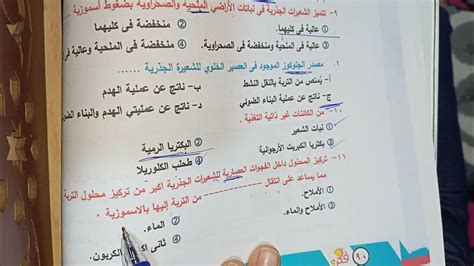 ٩- تتميز الشعيرات الجذرية فى نباتات الأراضي الملحية والصحراوية بضغوط أسموزية
① عالية فى كليهما.
② منخفضة فى كليهما
③ عالية فى الملحية ومنخفضة فى الصحراوية.
④ منخفضة فى الملحية وعالية
مصدر الجلوكوز الموجود فى العصير الخلوي للشعيرة الجذرية ........
أ- يُمتص من التربة بالنقل النشط
ب- ناتج عن عملية الهدم
ج- ناتج عن عملية البناء الضوئي
د- ناتج عن عمليتي الهدم والبناء الض
١٠- من الكائنات غير ذاتية التغذية.
① نبات الشعير
② البكتريا الرمية
③ بكتريا الكبريت الأرجوانية
④ طحلب الكلوريلا
١١- تركيز المحلول داخل الفجوات العصارية للشعيرات الجذرية أكبر من تركيز محلول التربة
مما يساعد على انتقال ---------- من التربة إليها بالاسموزية .
① الأملاح.
② الماء.
③ الأملاح والماء.
④ ثانى أكسيد الكربون.
٩٠